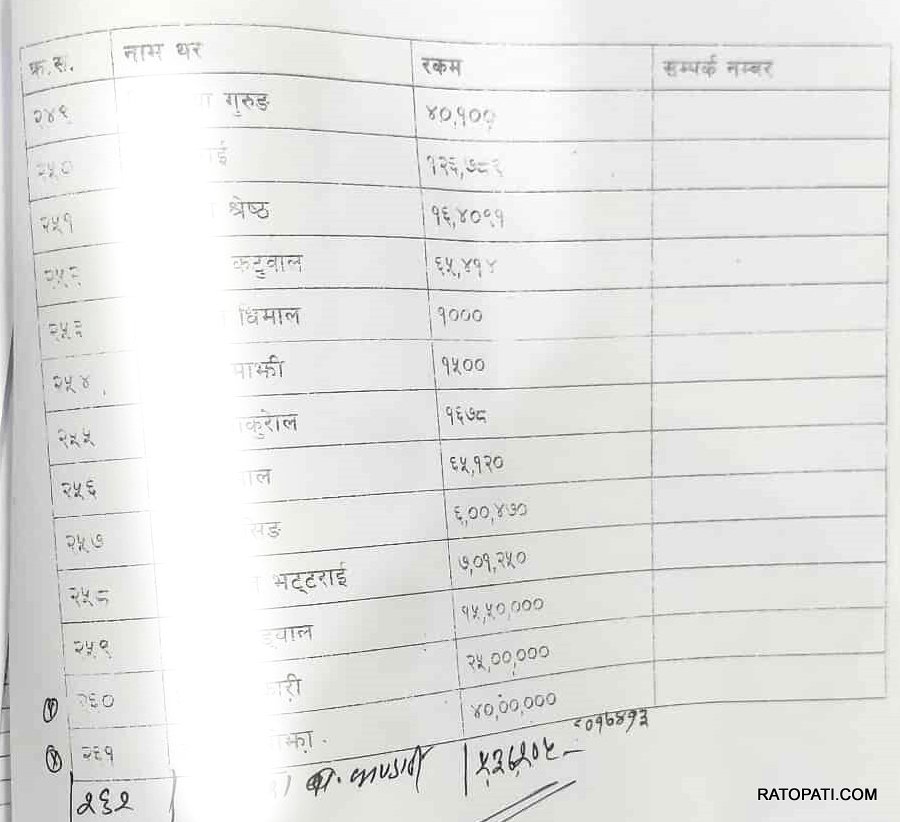 क्र.स. नाम थर रकम सम्पर्क नम्बर
२४९ गुरुङ ४०,१००
२५० ाई १२६,७८२
२५१ श्रेष्ठ १६,४०९१
२५२ कटुवाल ६५,४१४
२५३ धिमाल १०००
२५४ माझी १५००
२५५ कुरोल १६७८
२५६ ाल ६५,१२०
२५७ सङ ६,००,४७०
२५८ भट्टराई ७,०१,२५०
२५९ वाल १५,५०,०००
२६० ारी २५,००,०००
२६१ झा. ४०,००,०००
२६२
RATOPATI.COM